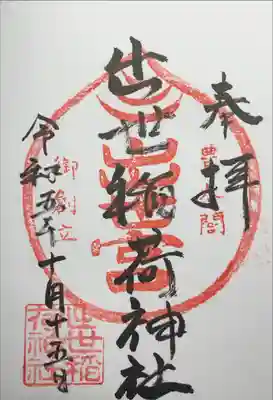 奉拝
豊太閤
出世稲荷神社
御創立
令和五年十月十五日
出世稲
荷神社